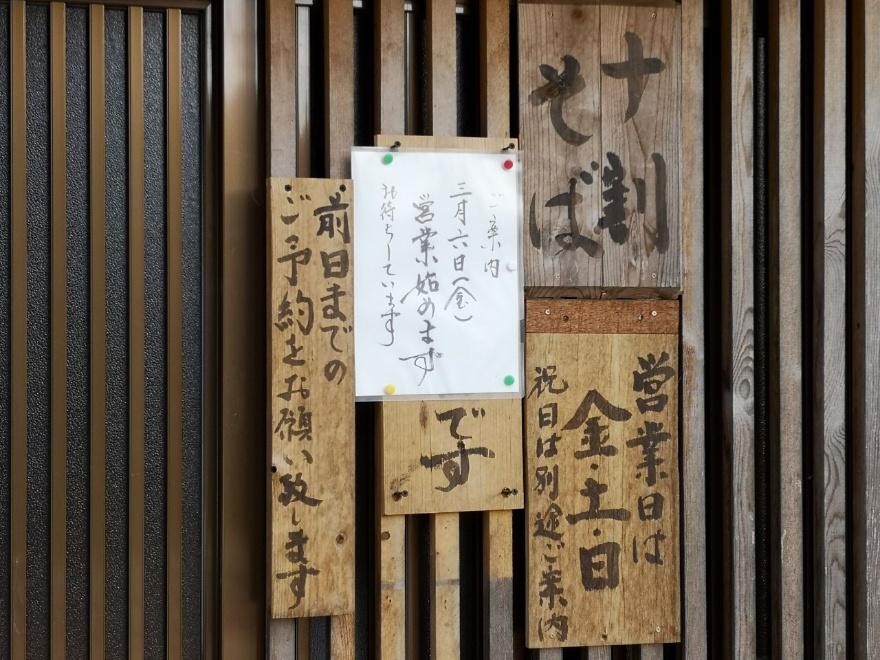 十割
そば
営業日は
金・土・日
祝日は別途ご案内
ご案内
三月六日(金)
営業始めます
お待ちしています
です
前日までの
ご予約をお願い致します